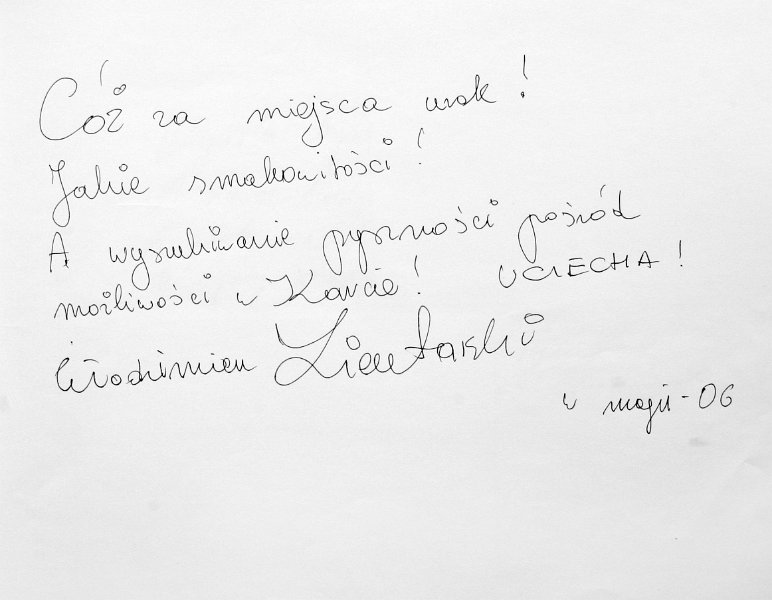 Cóż za miejsca urok!
Jakie smakowitości!
A wyszukiwanie pyszności pośród
możliwości w Karcie! UCIECHA!
Włodzimierz Zientarski
w maju - 06